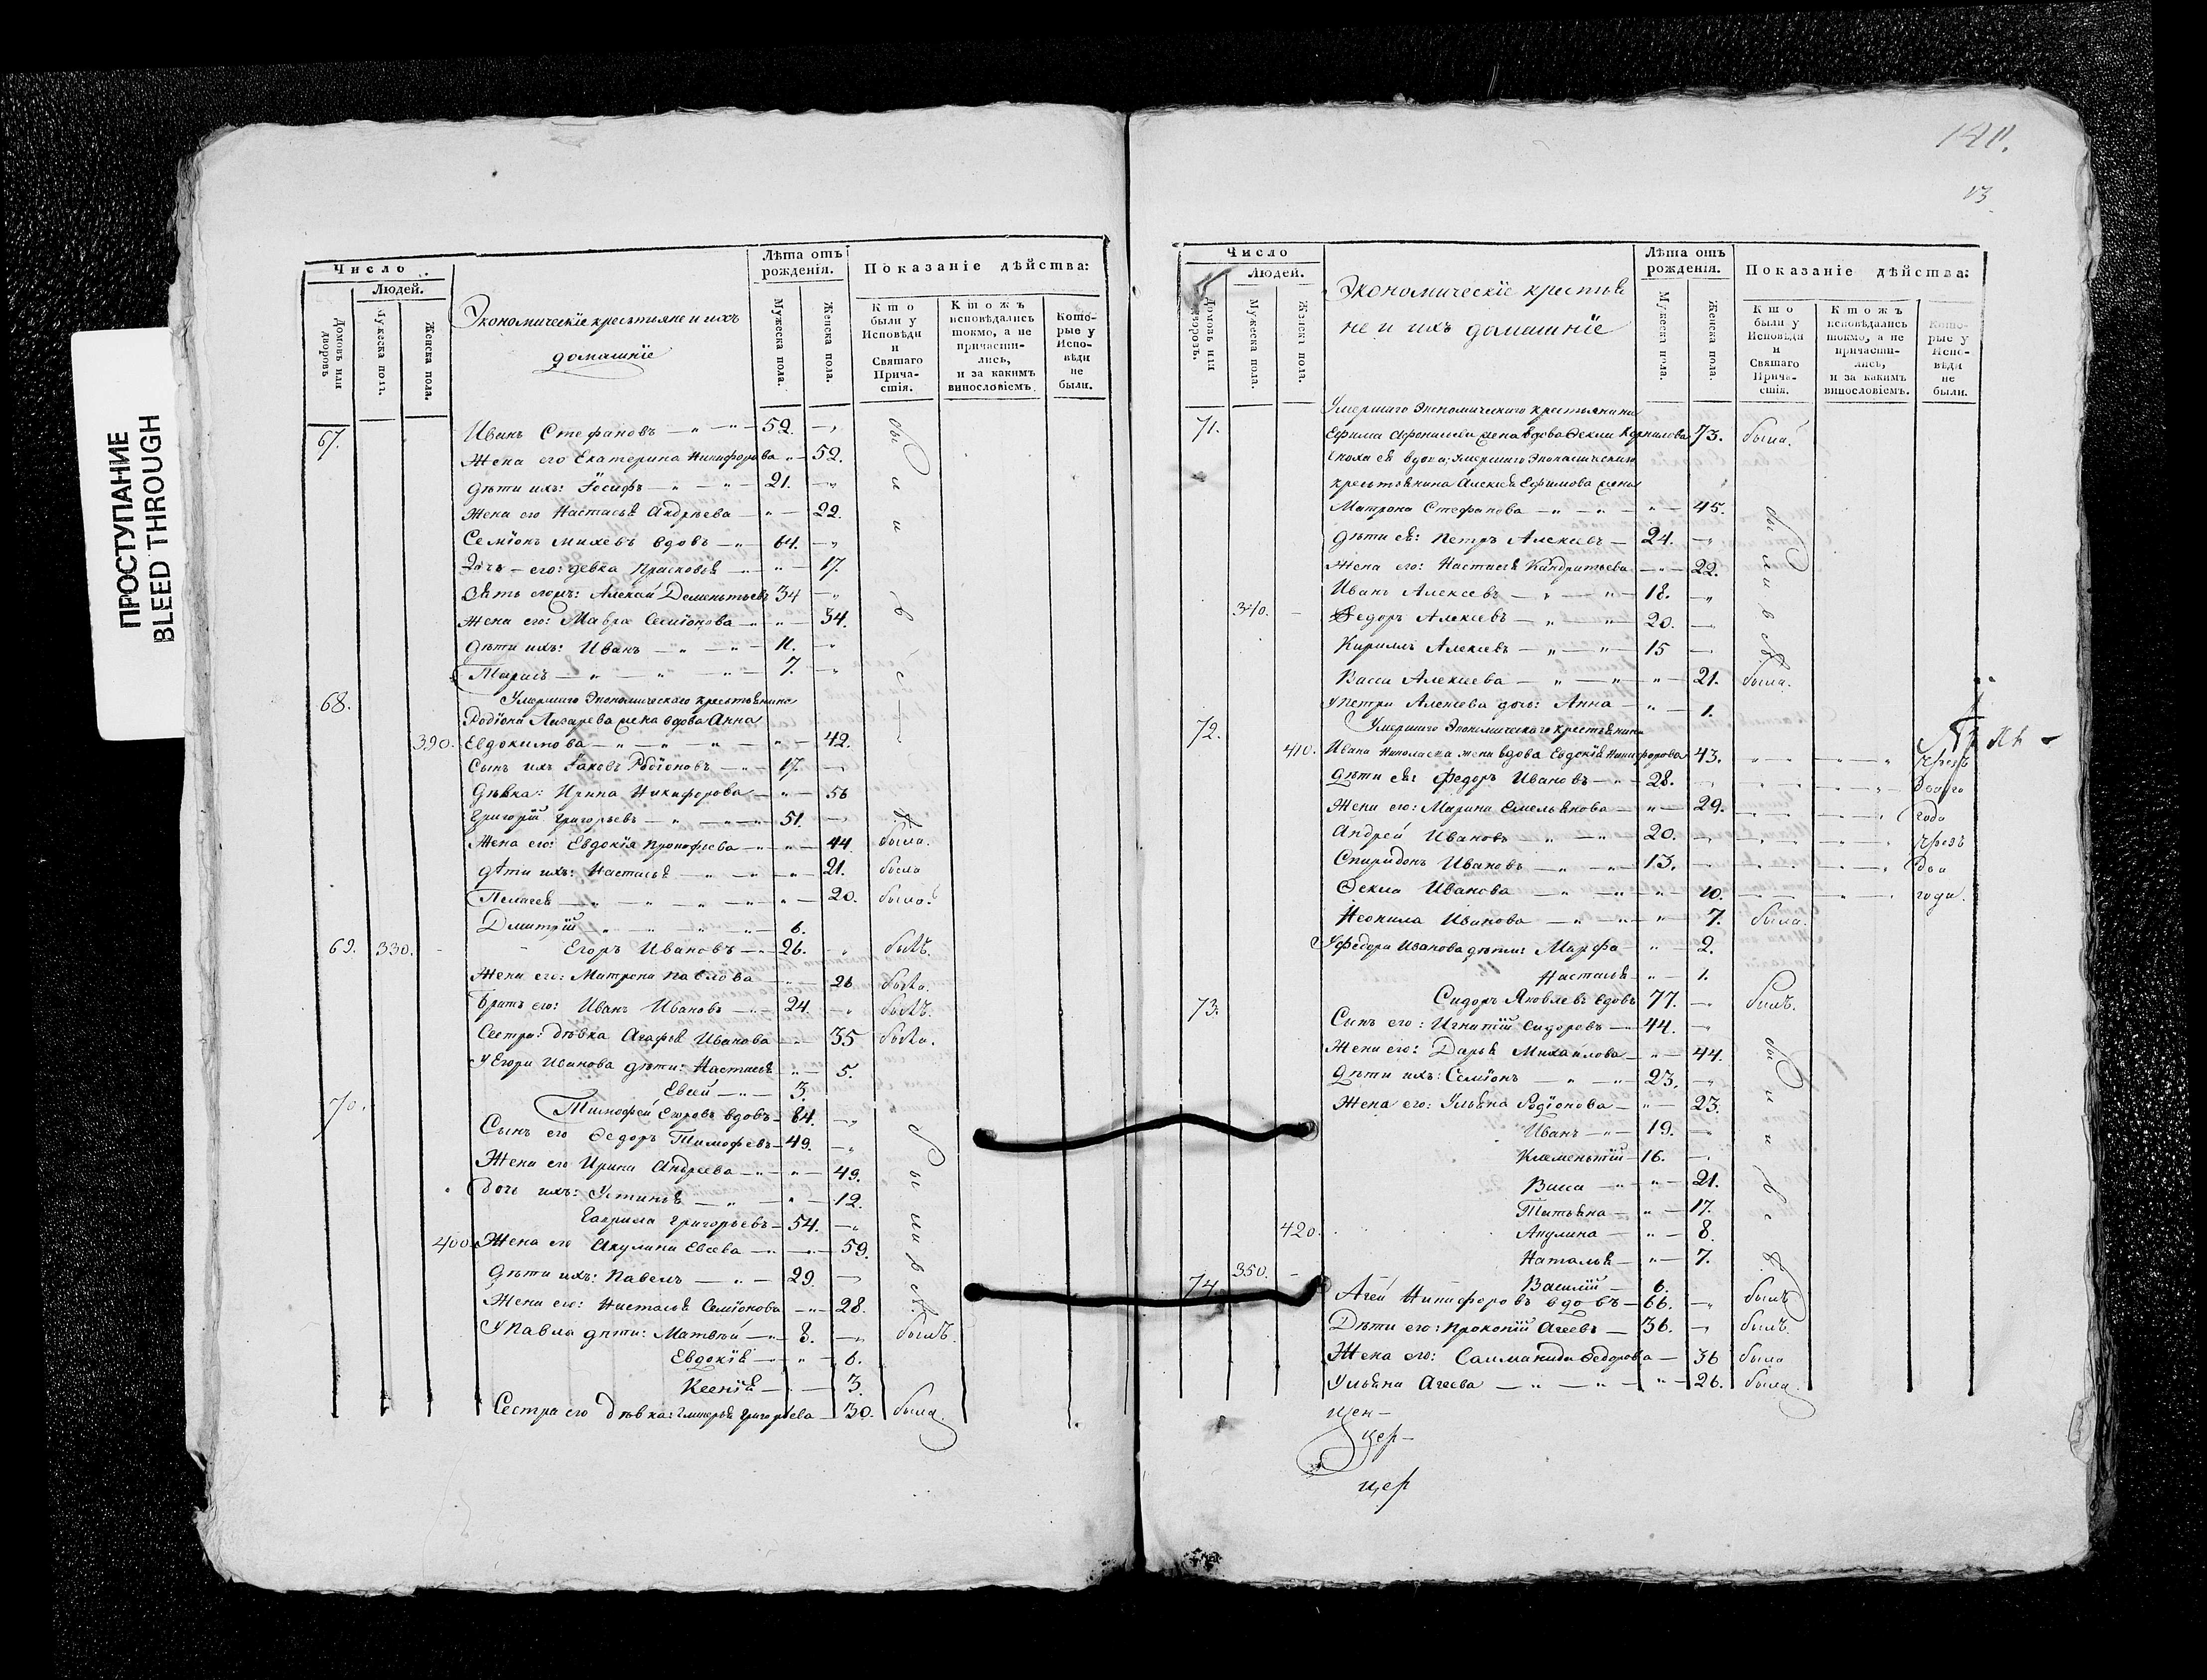 ПРОСТУПАНИЕ
BLEED THROUGH
Число
Людей.
Домовъ или дворовъ
Мужеска пола.
Женска пола.
Экономическіе крестьяне и ихъ
домашніе
Лѣта отъ рожденія.
Мужеска пола.
Женска пола.
Показаніе дѣйства:
Кто были у Исповѣди и Святаго Причастія.
Ктожъ исповѣдались токмо, а не причастились, и за какимъ винословіемъ.
Которые у Исповѣди не были.
67. Иванъ Стефановъ 52.
Жена его Екатерина Никифорова 52.
Дѣти ихъ: Іосифъ 21.
Жена его Настасья Андрѣева 22.
Семіонъ Михевъ вдовъ 64.
Дочь его: девка Прасковья 17.
Зять его: Алексей Дементьевъ 34
Жена его: Мавра Семіонова 34.
Дѣти ихъ: Иванъ 11.
Тарасъ 7.
68. Умершаго Экономическаго крестьянина
Родіона Лазарева жена вдова Анна
390. Евдокимова 42.
Сынъ ихъ Іаковъ Родіоновъ 17.
Дѣвка: Ирина Никифорова 56
Григорій Григорьевъ 51.
Жена его: Евдокія Прокофьева 44 была.
Дѣти ихъ: Настасья 21. была
Пелагея 20. была.
Дмитрій 6.
69. 330. Егоръ Ивановъ 26. былъ.
Жена его: Матрена Павлова 26 была.
Братъ его: Иванъ Ивановъ 24. былъ.
Сестра: дѣвка Агафья Иванова 35 была.
У Егора Иванова дѣти: Настасья 5.
Евсей 3.
70. Тимофей Егоровъ вдовъ 84.
Сынъ его Ѳедоръ Тимофевъ 49.
Жена его Ирина Андреева 49.
Дочь ихъ: Устинья 12.
Гаврила Григорьевъ 54.
400. Жена его Акулина Евсева 59.
Дѣти ихъ: Павелъ 29.
Жена его: Настасья Семіонова 28.
У Павла дѣти: Матвѣй 8. былъ.
Евдокія 6.
Ксенія 3.
Сестра его дѣвка: Григорьева 30. была.
были в
были вс
140.
13
Число
Людей.
Домовъ или дворовъ.
Мужеска пола.
Женска пола.
Экономическіе крестья
не и ихъ домашніе
Лѣта отъ рожденія.
Мужеска пола.
Женска пола.
Показаніе дѣйства:
Кто были у Исповѣди и Святаго Причастія.
Ктожъ исповѣдались токмо, а не причастились, и за какимъ винословіемъ.
Которые у Исповѣди не были.
71. Умершаго Экономическаго крестьянина
Ефима жена вдова Ѳекла Корнилова 73. была.
Сноха ея вдова, умершаго Экономическаго
крестьянина Алексея Ефимова жена
Матрона Стефанова 45.
Дѣти ея: Петръ Алексевъ 24.
Жена его: Настасья Кандратьева 22.
Иванъ Алексевъ 18.
340. Ѳедоръ Алексевъ 20.
Кирилъ Алексевъ 15
Васса Алексеева 21. была.
У Петра Алексева дочь: Анна 1.
72. Умершаго Экономическаго крестьянина
410. Ивана Николаева жена вдова Евдокія Никифорова 43. чрезъ
Дѣти ея: Федоръ Ивановъ 28.
Жена его: Марина Емельянова 29. года
Андрей Ивановъ 20. чрезъ
Спиридонъ Ивановъ 13. два
Ѳекла Иванова 10. года.
Неонила Иванова 7. была
У Федора Иванова дѣти: Марфа 2.
Настасья 1.
73. Сидоръ Яковлевъ вдовъ 77. былъ.
Сынъ его: Игнатій Сидоровъ 44.
Жена его: Дарья Михайлова 44.
Дѣти ихъ: Семіонъ 23.
Жена его: Ульяна Родіонова 23.
Иванъ 19.
Клементій 16.
Васса 21.
Татьяна 17.
420. Акулина 8.
Наталья 7.
350. Василій 6.
74. Агей Никифоровъ вдовъ 66. былъ
Дѣти его: Прокопій Агеевъ 36. былъ.
Жена его: Саламанида Ѳедорова 36 была
Ульяна Агеева 26. была.
были в
были вс
цер
цер